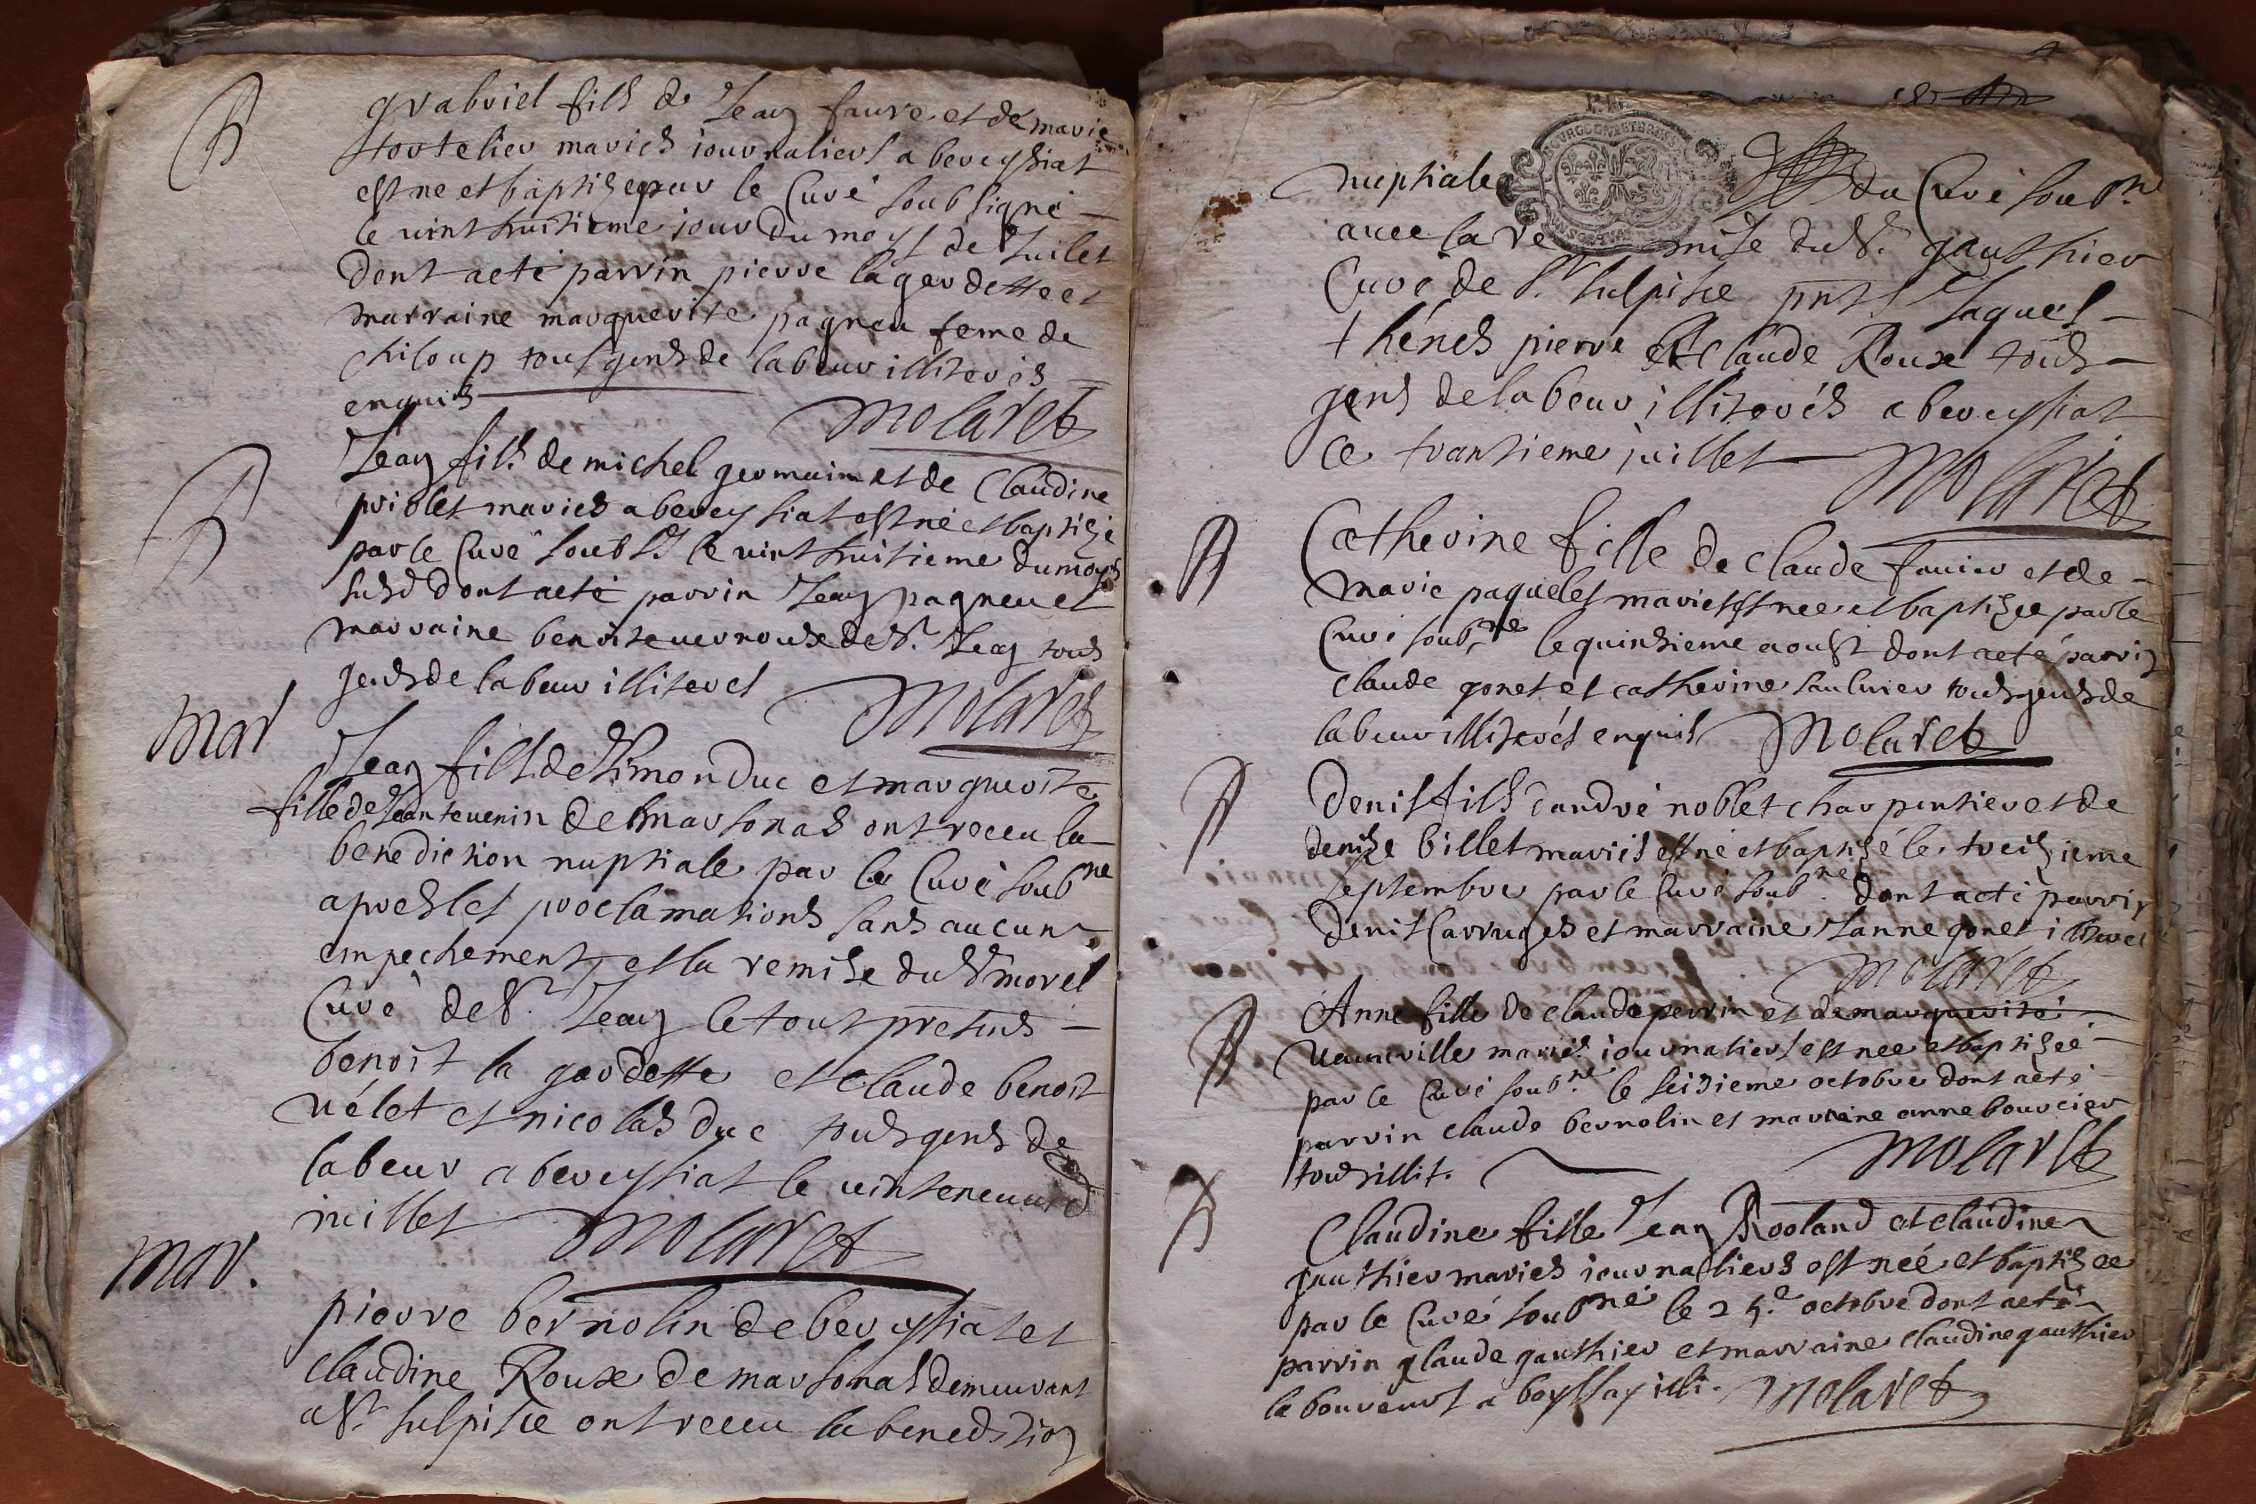 B
gvabriel fils de Jean favre et de marie
tortelier mariés iournaliers a bereyssiat
est ne et baptize par le Curé soubsigné
le vint huitieme iour du moys de Juilet
dont acte parrin pierre lagerdette et
marraine marguerite pagneu feme de
chiloup tous gens de labeur illiterés
enquis
molaret
B
Jean fils de michel germain et de Claudine
priblet mariés a bereyssiat est né et baptizé
par le Curé soubs.é le vint huitieme du moys
susd dont acte parrin Jean pagneu et
marraine benoite vernoux de St. Jean tous
gens de labeur illiteres
molaret
mar
Jean fils de Simon Duc et marguerite
fille de Jean tevenin de marsonas ont receu la
benediction nuptiale par le Curé soub.né
apres les proclamations sans aucun
empechement, et la remise du Sr morel
Curé de St. Jean le tout presents
benoit la gardette et Claude benoit
vélet et nicolas duc tous gens de
labeur a bereyssiat le vinteneuve
iuillet
molaret
mar.
pierre bernolin de bereyssiat et
claudine Roux de marsonas demeurant
a St. Sulpisce ont receu la benediction
nuptiale du Curé soub.né
avec la remise du Sr. gauthier
Curé de St. Sulpisce pnts Jaques
thénes pierre et Claude Roux tous
gens de labeur illiterés a bereyssiat
ce trantieme juillet
molaret
B
Catherine fille de Claude favier et de
marie paquelet mariés est nee et baptizee par le
Curé soub.né le quinsieme aoust dont acte parrin
Claude gonet et catherine saulnier tous gens de
labeur illiterés enquis
molaret
B
denis fils d'andré noblet charpentier et de
denize billet mariés est né et baptizé le treizieme
septembre par le Curé soub.né dont acte parrin
denis Carruges et marraine Janne gonet
molaret
B
Anne fille de claude perrin et de marguerite
veuneville mariés iournaliers est nee et baptizée
par le Curé soub.né le seisieme octobre dont acte
parrin claude bernolin et marraine anne bourcier
tous illit.
molaret
B
Claudine fille Jean Rooland et claudine
gauthier mariés iournalliers est née et baptizee
par le Curé soub.né le 25.e octobre dont acte
parrin glaude gauthier et marraine claudine gauthier
laboureurs a boyssay illi.
molaret